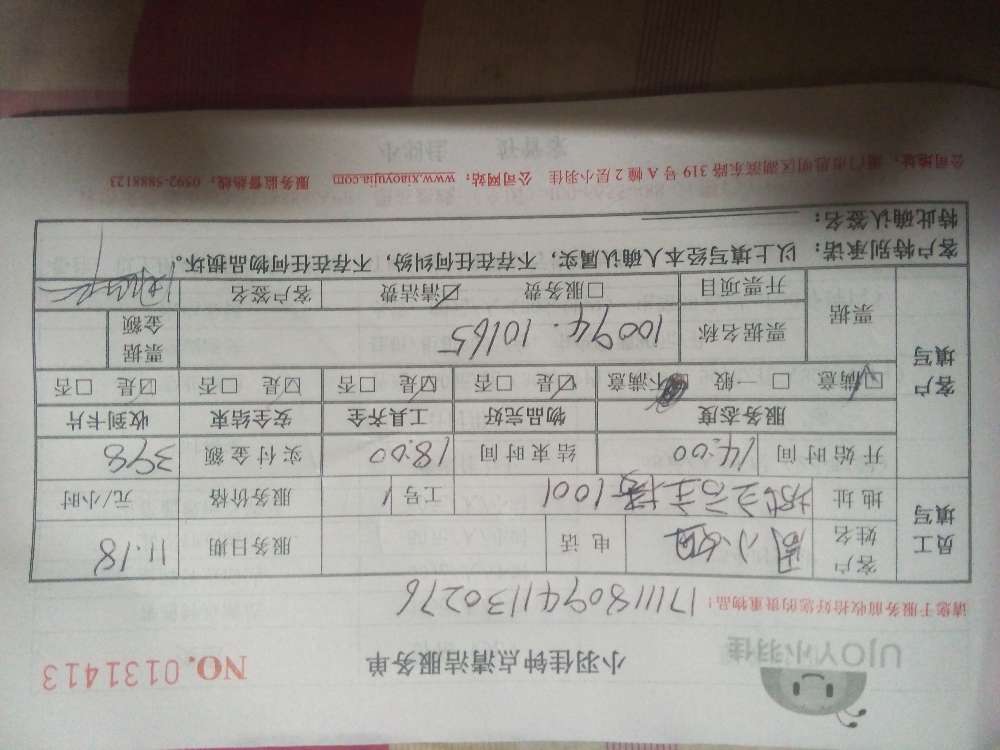 UJOY小羽佳
小羽佳钟点清洁服务单 NO.0131413
请您于服务前收拾好您的贵重物品! 1711180941130276
员工填写 客户姓名 周小姐 电话 服务日期 11.18
地址 1001 工号 1 服务价格 元/小时
开始时间 14:00 结束时间 18:00 实付金额 398
客户填写 服务态度 物品完好 工具齐全 安全结束 收到卡片
☑满意 □一般 不满意 ☑是 □否 ☑是 □否 ☑是 □否 ☑是 □否
票据 票据名称 10094. 10165 票据金额
开票项目 □服务费 ☑清洁费 客户签名
客户特别承诺:以上填写经本人确认属实,不存在任何纠纷,不存在任何物品损坏。
特此确认签名:
公司地址:厦门市思明区湖滨东路319号A幢2层小羽佳 公司网站:www.xiaoyujia.com 服务监督热线:0592-5888123